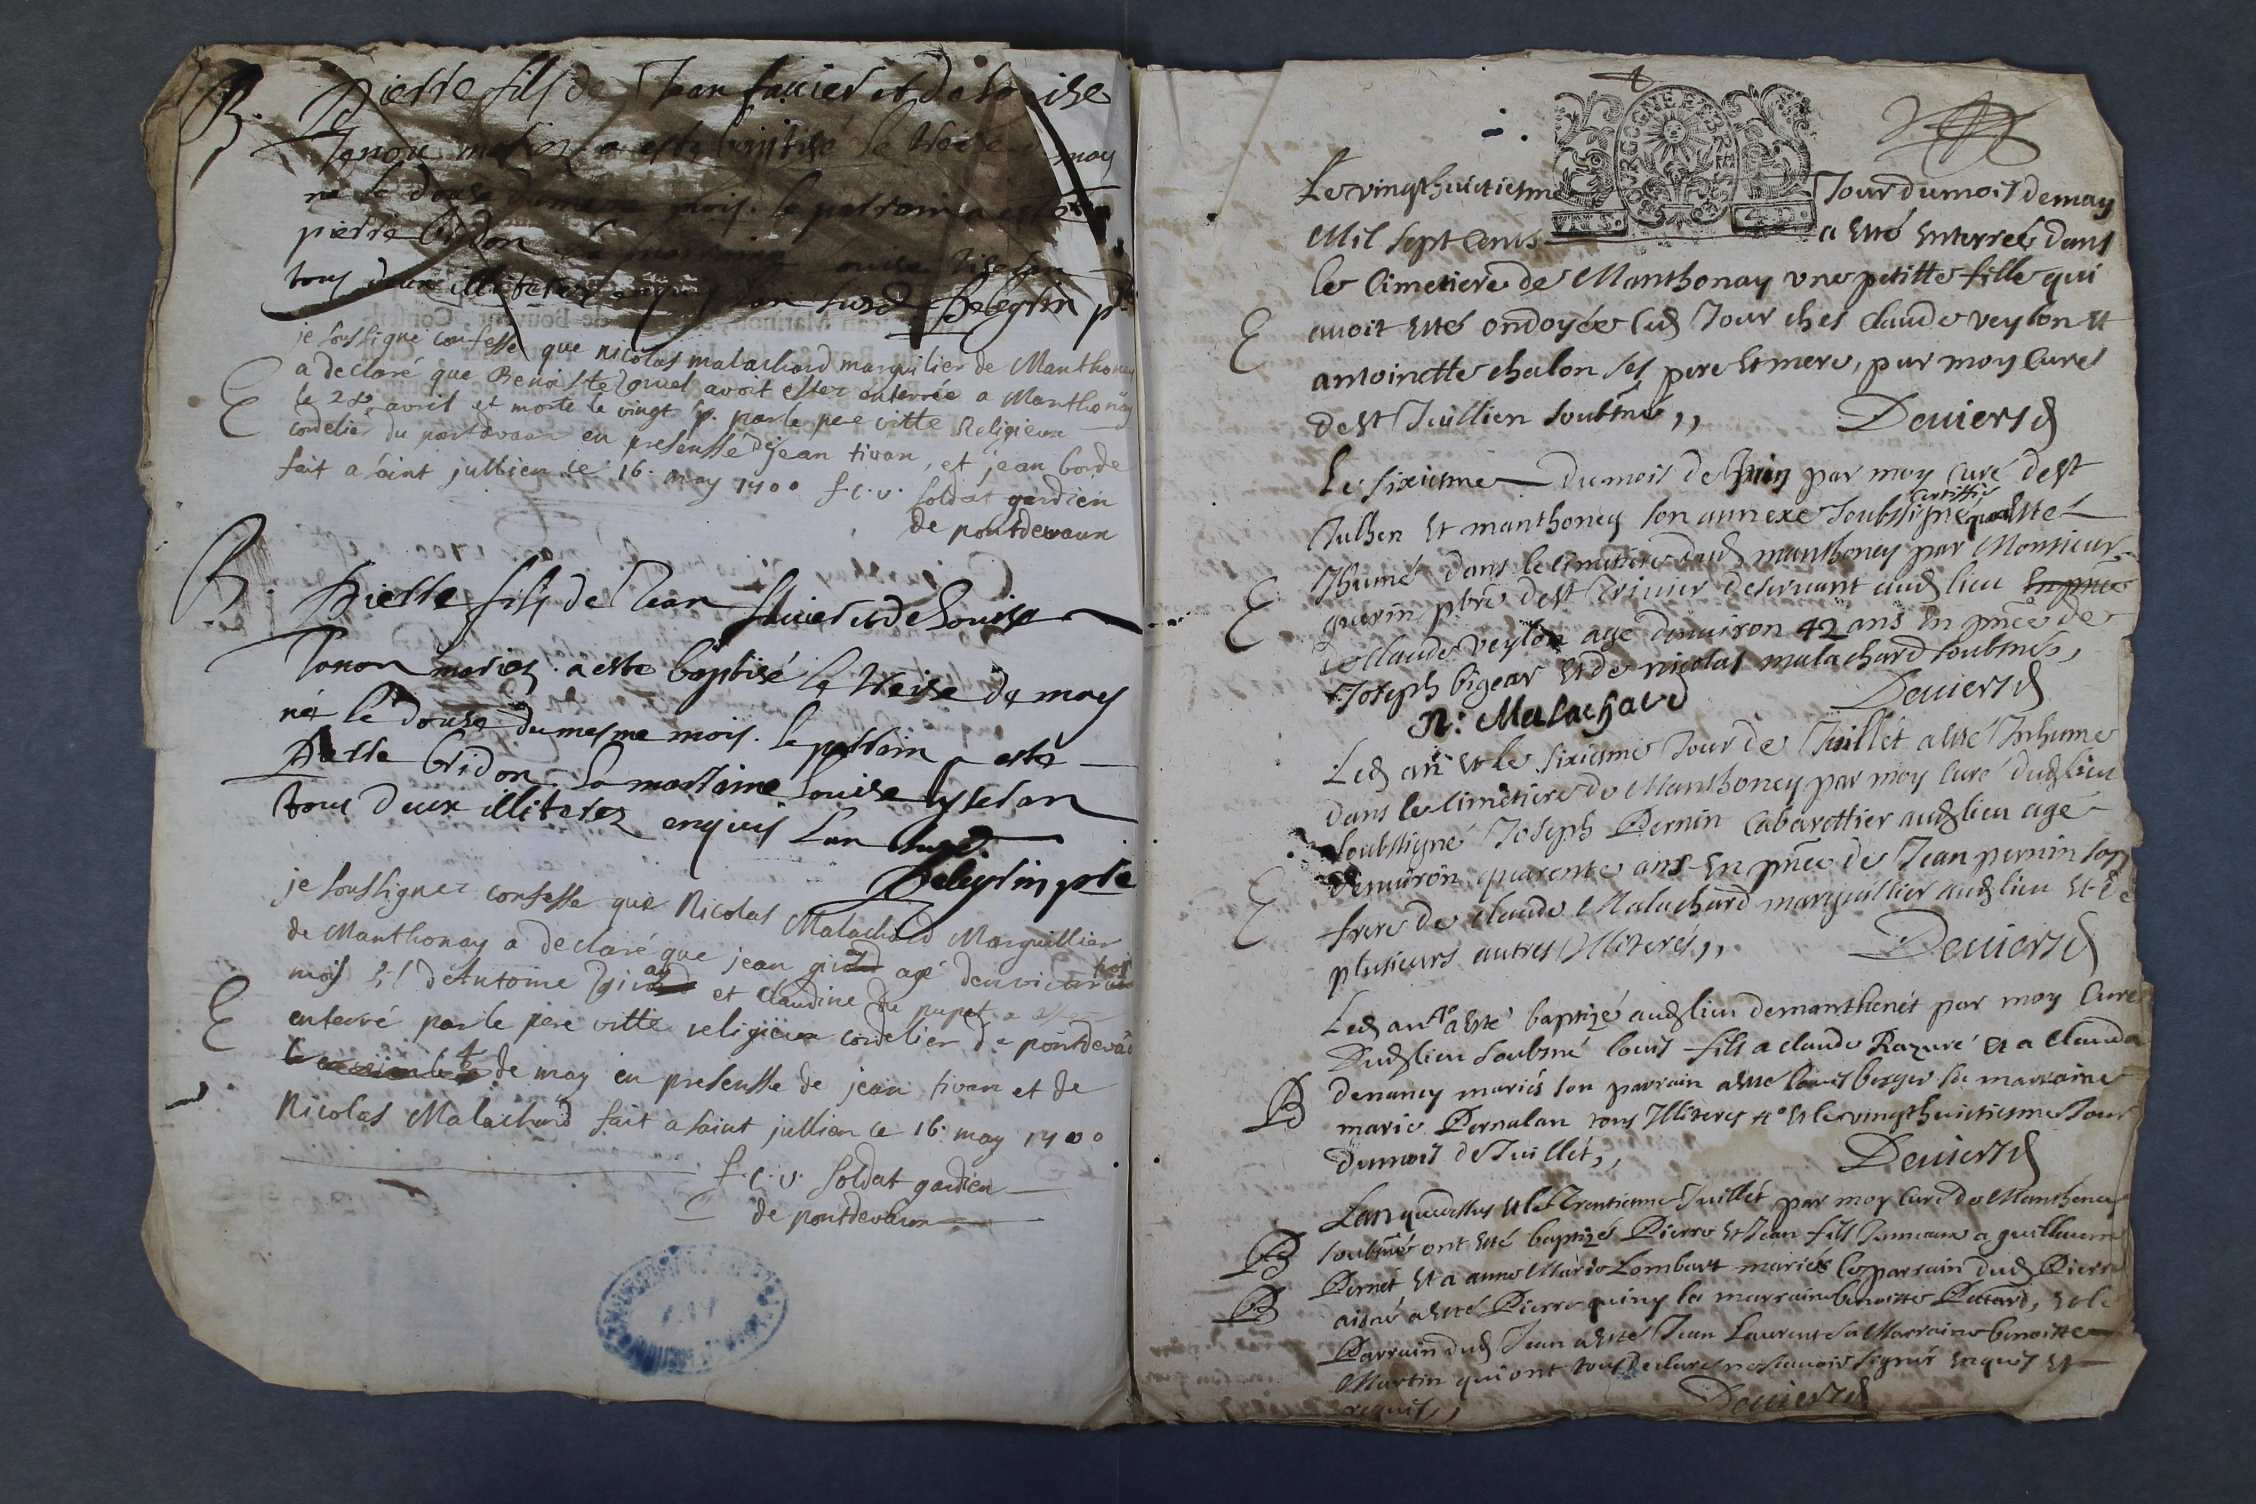 B. Pierre fils de Jean fauier et de Louise
Tonon mariez a esté baptisé le treise may
né le douse du mesme mois. le parrain a esté
pierre Gridon
tous deux illiterez enquis Pelegrin p
je soussigne confesse que nicolas malachard marguilier de Manthonay
a declaré que Benoiste avoit estez enterrée a Manthonay
E le 28 avril et morte le vingt sp. par le pere vitte Religieux
cordelier du pontdevaux en presensse de jean tivan, et jean borde
fait a saint jullien ce 16. may 1700 f. c. v. soldat gardien
de pontdevaux
B. Pierre fils de Jean fauier et de Louise
Tonon mariez a este baptisé le treise de may
né le douse du mesme mois. le parrain a esté
Pierre Gridon la marraine Louise
tous deux illiterez enquis
Pelegrin ptre
je soussignez confesse que Nicolas Malachard Marguillier
de Manthonay a declaré que jean agé denviron
mois fil d'Antoine et Claudine du pupet a
E enterré par le pere vitte religieux cordelier de pontdevau
le 4 de may en presensse de jean tivan et de
Nicolas Malachard fait a saint jullien ce 16. may 1700
f. c. v. soldat gardien
de pontdevaux
BOVRGOGNE ET BRESSE
Le vingthuictiesme Jour du mois de may
Mil sept Cents a esté Enterrée dans
le Cimetiere de Manthonay vne petitte fille qui
E auoit esté ondoyée led Jour ches claude veylon et
antoinette chalon ses pere et mere, par moy Curé
de st Jullien soubsné,, Deuiersd
Le sixiesme du mois de Juin par moy Curé de st
Julhen et manthoney son annexe soubssigné certiffie qua esté
Jhumé dans le cimetiere dud manthoney par Monsieur
E guerin pbre de st Triuier deseruant aud lieu
claude veylon agé denuiron 42 ans En pnce de
Joseph bigear et de nicolas malachard soubsnés,
n: Malachard Deuiersd
Led an et le sixiesme Jour de Juillet a esté Inhumé
dans le cimetiere de Manthoney par moy Curé dud lieu
soubssigné Joseph Pernin Cabarettier aud lieu agé
E denuiron quarente ans En pnce de Jean pernin son
frere de claude Malachard marguillier aud lieu et de
plusieurs autres Illiterés,, Deuiersd
Led an a esté baptizé aud lieu de manthenét par moy Curé
dud lieu soubsné louis fils a claude Razuré et a Clauda
B denancy mariés son parrain a esté louis berger sa marraine
marie Pernalan tous Illiteres et le vingthuictiesme Jour
du mois de Juillét,, Deuiersd
Lan quedessus et le Trentiesme Juillét par moy Curé de Manthenay
B soubsné ont esté baptizés Pierre et Jean fils Jumeaux a guillaume
Pernet et a anne Marie Lombart mariés le parrain dud Pierre
B aisné a esté Pierre quiny la marraine benoitte Putard, et le
Parrain dud Jean a esté Jean Laurent sa Marraine benoitte
Martin qui ont tous declaré ne scauoir signer enquis et
requis,, Deuiersd